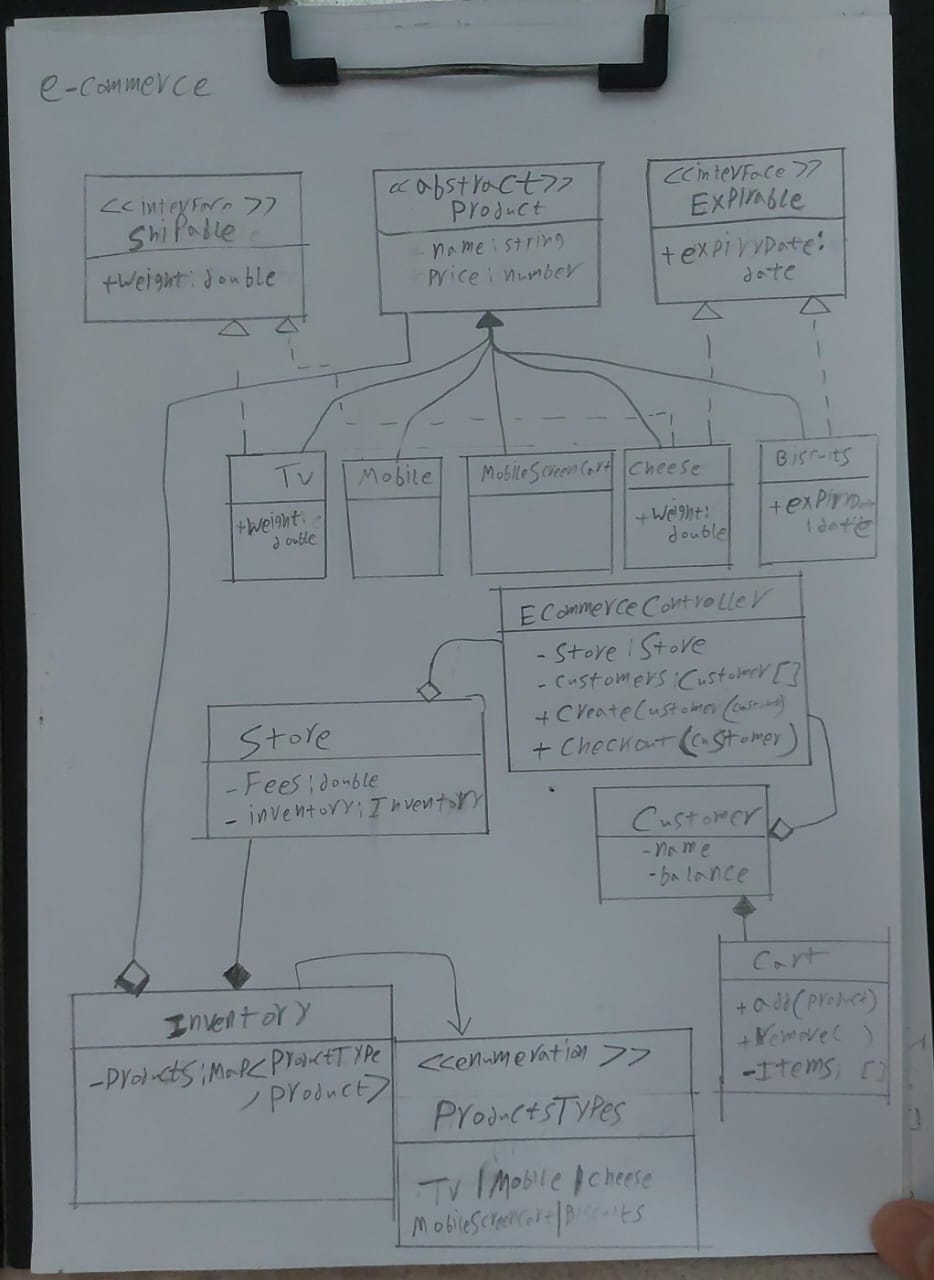 e-commerce
<<interface>>
ShiPable
+Weight: double
<<abstract>>
Product
- name: string
- Price: number
<<interface>>
Expirable
+expiryDate:
date
Tv
+Weight:
double
Mobile
MobileScreenCart
Cheese
+Weight:
double
Biscuits
: date
ECommerceController
- Store: Store
- customers: Customer[]
+ CreateCustomer(
+ Checkout (customer)
Store
- Fees: double
- inventory: Inventory
Customer
- name
- balance
Cart
+ add(product)
+ Remove( )
- Items: []
Inventory
- Products: Map<ProductType
, product>
<<enumeration>>
ProductsTypes
Tv | Mobile | cheese
MobileScreenCart | Biscuits